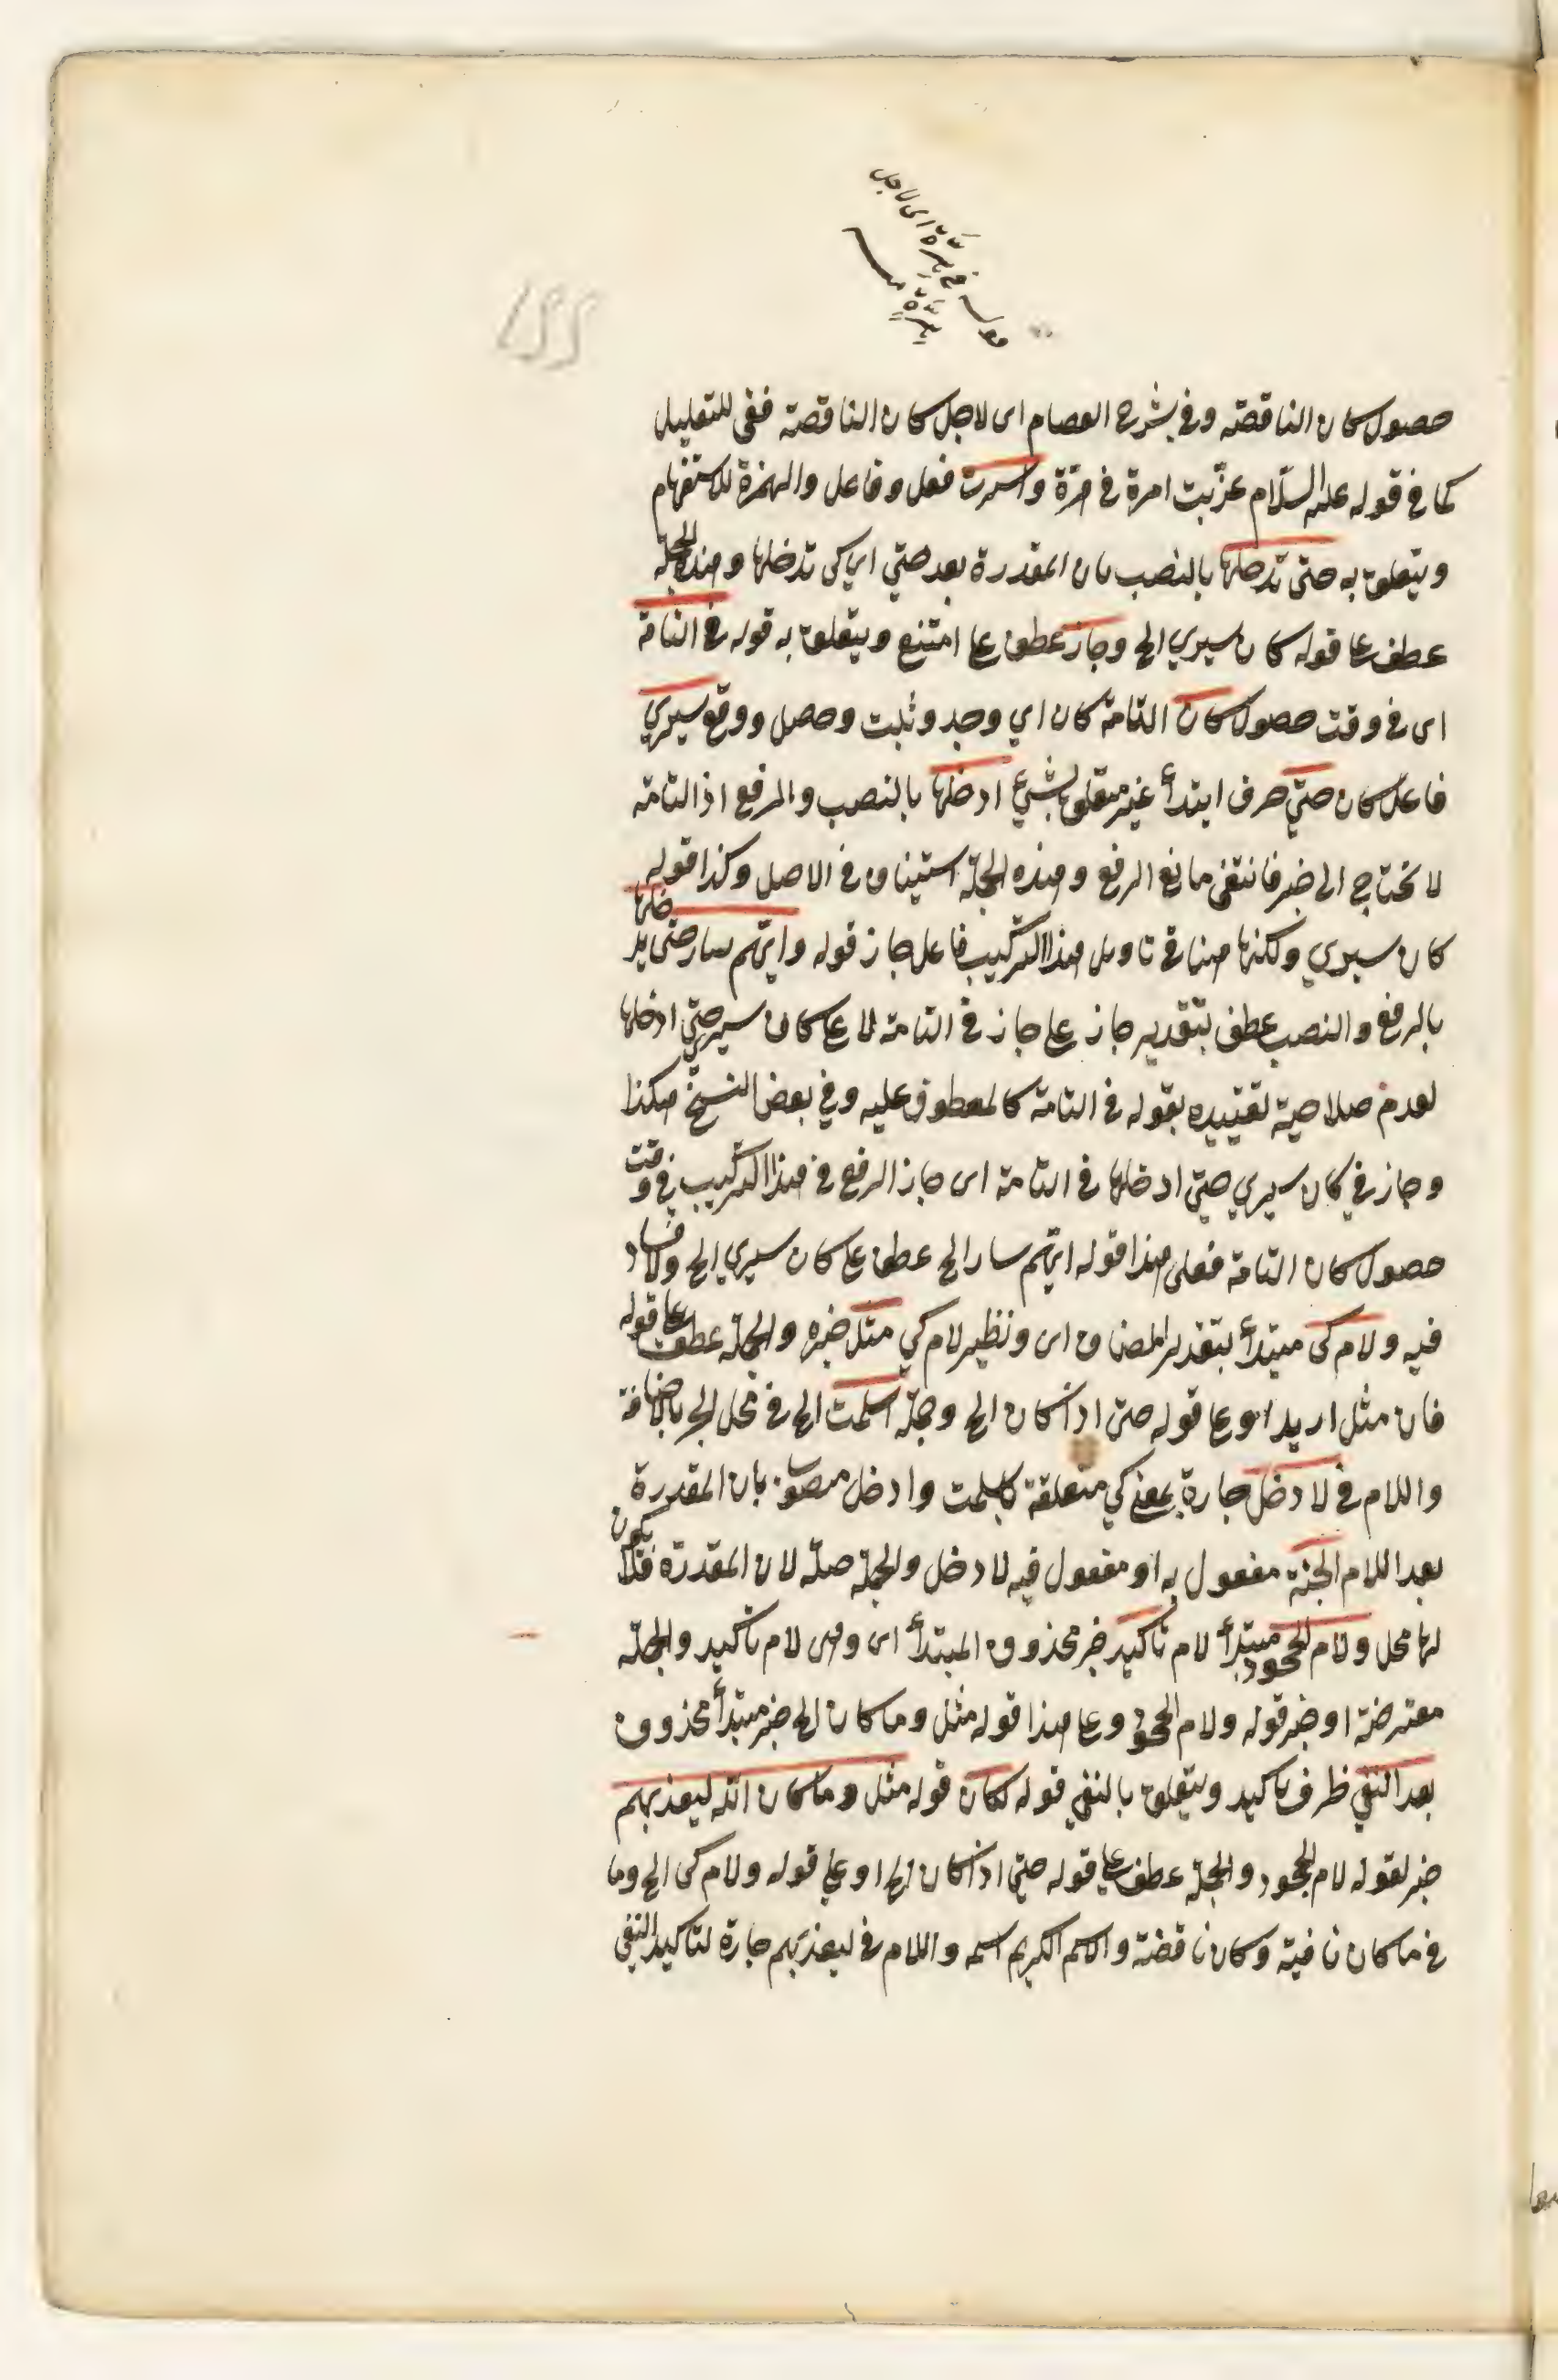 قوله في هرّة اى لاجل
هرّة
حصول كان الناقصة وفي شرح العصام اى لاجل كان الناقصة ففى للتعليل
كما في قوله عليه السلام عذّبت امرة في هرّة واسرت فعل وفاعل والهمزة للاستفهام
ويتعلق به حتى تدخلها بالنصب بان المقدرة بعد حتي اي كى تدخلها وهذه الجملة
عطف علي قوله كان سيري الخ وجاز عطف علي امتنع ويتعلق به قوله في التامة
اى في وقت حصول كان التامة كان اي وجد وثبت وحصل ووقع سيري
فاعل كان حتي حرف ابتدأ غير متعلق بشئ ادخلها بالنصب والرفع اذ التامة
لا تحتاج الى خبر فانتفى مانع الرفع وهذه الجملة استيناف في الاصل وكذا قوله
كان سيري ولكنها هنا في تاويل هذا التركيب فاعل جاز قوله وايّهم سار حتى يدخلها
بالرفع والنصب عطف بتقدير جاز علي جاز في التامة لا علي كان سيري حتي ادخلها
لعدم صلاحية تقييده بقوله في التامة كالمعطوف عليه وفي بعض النسخ هكذا
وجاز في كان سيري حتي ادخلها في التامة اى جاز الرفع في هذا التركيب في وقت
حصول كان التامة فعلى هذا قوله ايّهم سار الخ عطف علي كان سيري الخ ولا فساد
فيه ولام كى مبتدأ بتقدير المضاف اى ونظير لام كي مثل خبره والجملة عطف علي قوله
فان مثل اريد او علي قوله حتى اذا كان الخ وجملة اسلمت الخ في محل الجر بالاضافة
واللام في لادخل جارة بمعني كي متعلقة باسلمت وادخل منصوب بان المقدرة
بعد اللام الجنة مفعول به او مفعول فيه لادخل والجملة صلة لان المقدرة فلا يكون
لها محل ولام الجحود مبتدأ لام تأكيد خبر محذوف المبتدأ اى وهى لام تأكيد والجملة
معترضة او خبر قوله ولام الجحود وعلي هذا قوله مثل وما كان الخ خبر مبتدأ محذوف
بعد النفي ظرف تأكيد ويتعلق بالنفي قوله لكان قوله مثل وما كان الله ليعذبهم
خبر لقوله لام الجحود والجملة عطف علي قوله حتي اذا كان الخ او علي قوله ولام كى الخ وما
في ما كان نافية وكان ناقصة والاسم الكريم اسمه واللام في ليعذبهم جارة لتاكيد النفي